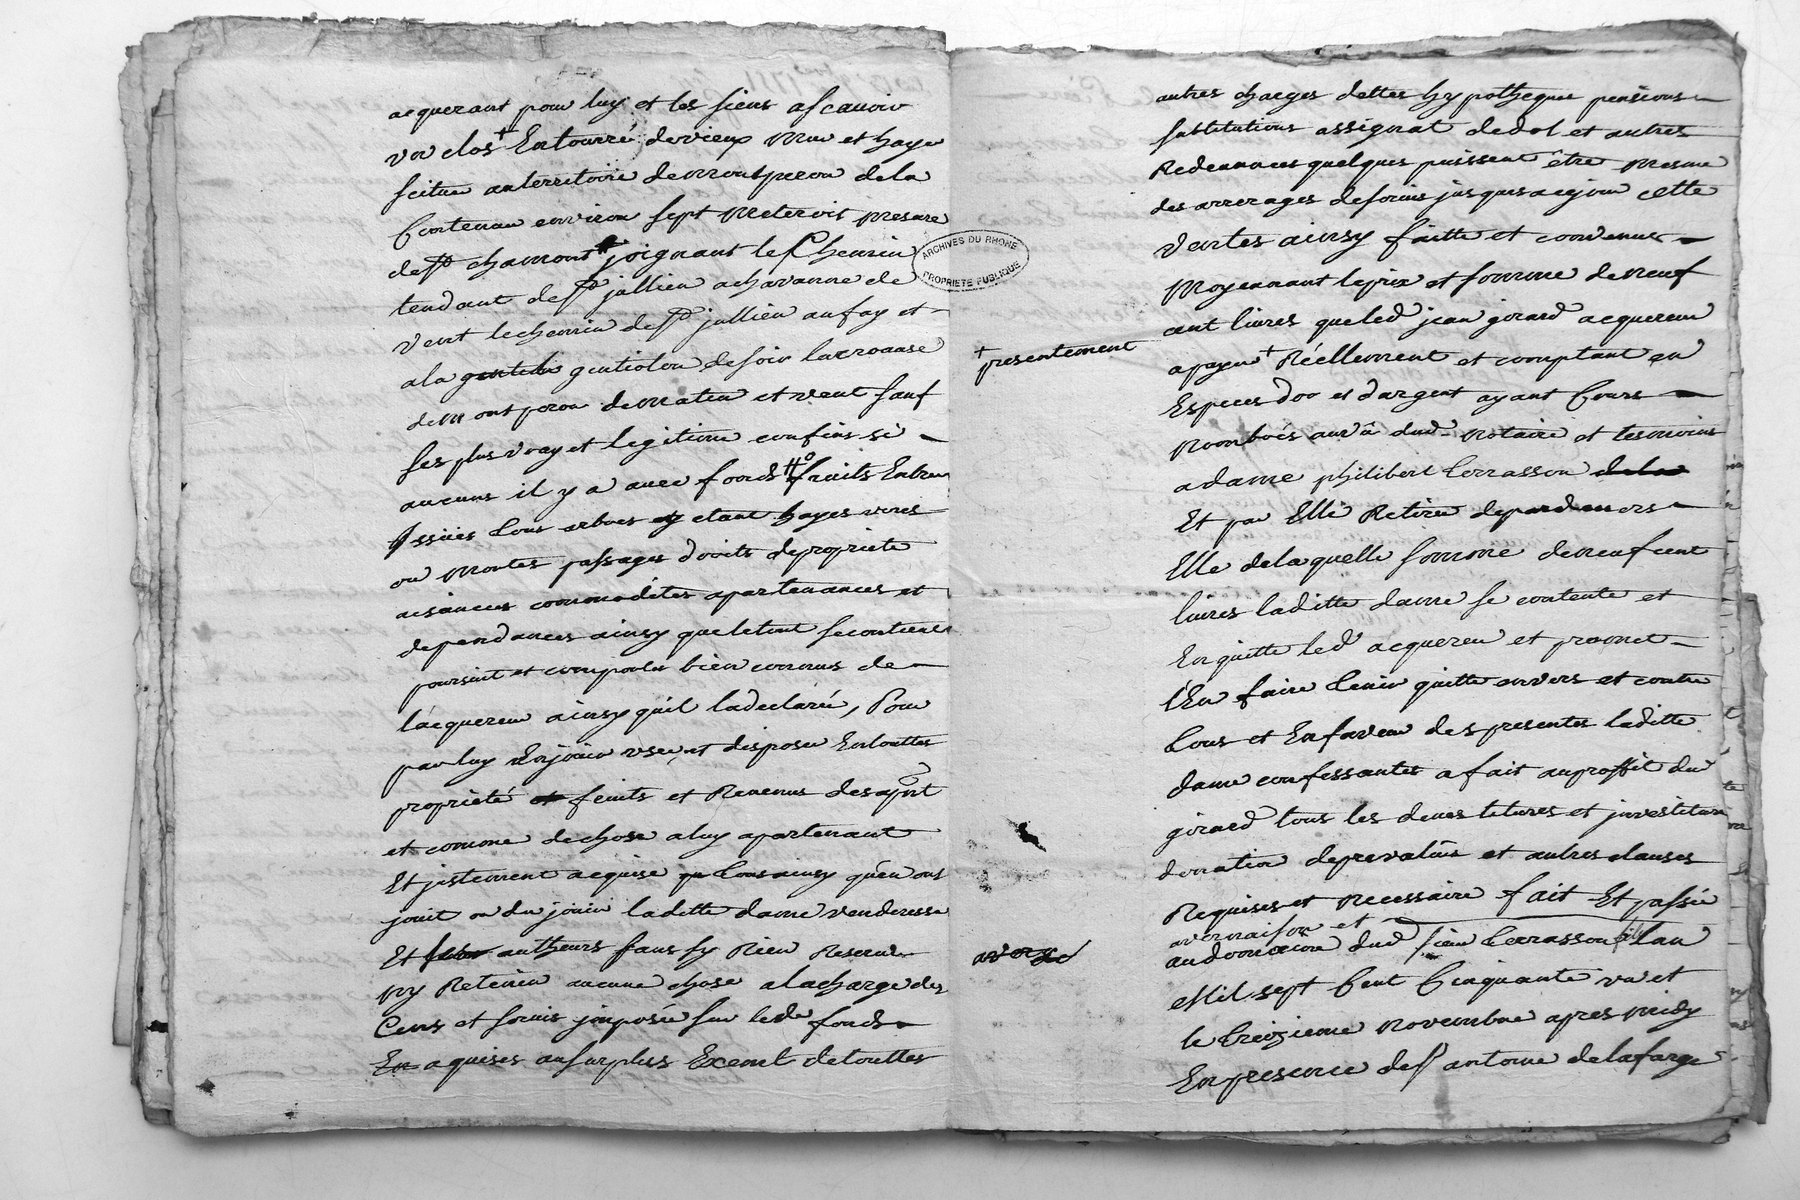 acquerant pour luy et les siens ascauoir
vn clos + Entouré de vieux mur et haye
scitue au territoire de montperon de la
Contenan environ sept meterois mesure
de St chamont joignant le Chemin
tendant de St jullien a chavanne de
vent le chemin de St jullien au fay et
a la gentiolon de soir la
de montperon de matin et vent sauf
ses plus vray et legitime confins si
aucuns il y a avec fonds fruits Entrees
Issües tous arbres y etant hayes vives
ou mortes passages droits de propriete
aisances commodites apartenances et
dependances ainsy que le tout se contient
poursuit et comporte bien connus de
lacquereur ainsy quil la declaré, Pour
par luy En jouir vser et disposer En touttes
proprieté fruits et Revenus des a
et comme de chose a luy apartenant
Et justement acquise tous ainsy qu'en ont
jouit ou du jouir laditte dame venderesse
Et autheurs sans sy Rien Reserver
ny Retenir aucune chose a la charge des
Cens et servis imposés sur lesd fonds
aquises au surplus Exemt de touttes
ARCHIVES DU RHONE
PROPRIETE PUBLIQUE
autres charges dettes hypotheques pensions
substitutions assignat de dot et autres
Redevances quelques puissent être mesme
des arrerages de servis jusques a ce jour cette
Ventes ainsy faitte et convenue
Moyennant le prix et somme de neuf
cent livres que led jean girard acquereur
a payer + Réellement et comptant en
+ presentement
Especes d'or et d'argent ayant Cours
Nombrés aux dud Notaire et tesmoins
a dame philibert terrasson
Et par Elle Retirer
Elle de laquelle somme de neuf cent
livres laditte dame se contente et
En quitte led acquereur et promet
l'En faire tenir quitte envers et contre
tous et En faveur des presentes laditte
dame confessantes a fait au proffit du
girard tous les deues titures et jnvestiture
donation de prevalüe et autres clauses
Requises et necessaire fait Et passé
a vernaison et
au domicire dud sieur terrasson fils l'an
Mil sept Cent Cinquante vn et
le treizieme novembre apres midy
En presence de sr antoine delafarge